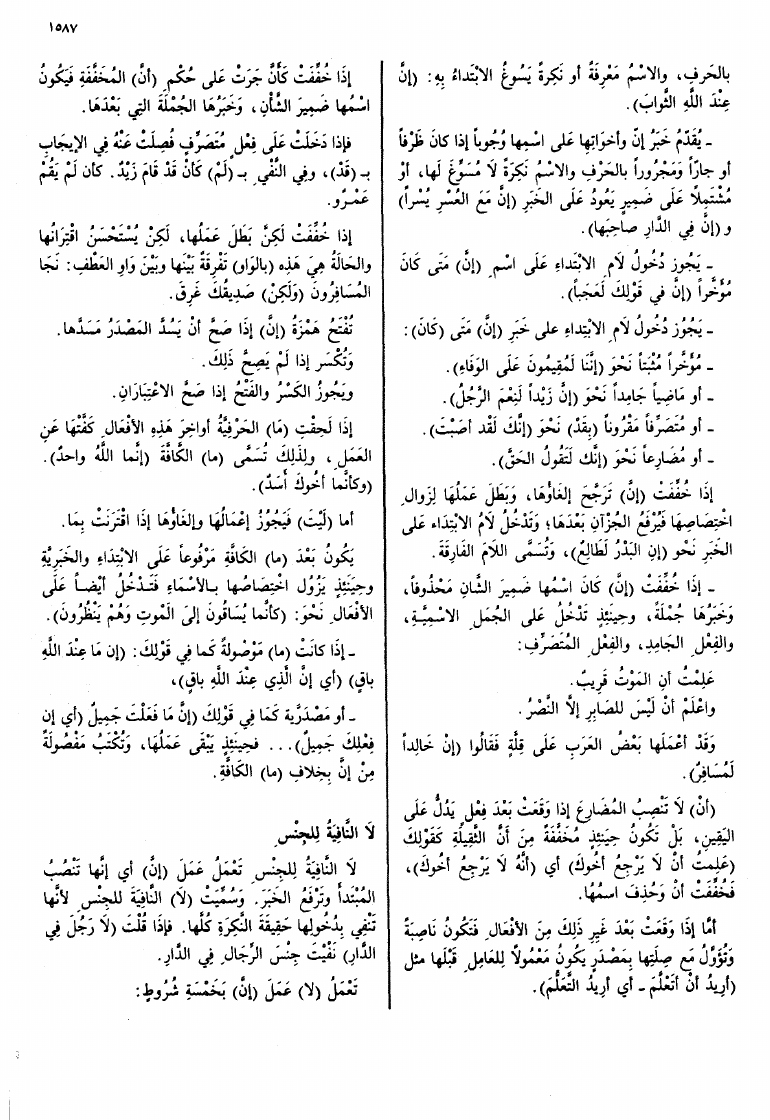 ١٥٨٧
بالحَرفِ، والاسْمُ مَعْرِفَةً أو نَكِرةً يَسُوغُ الابْتِداءُ بِهِ: (إنَّ
عِنْدَ اللَّهِ الثَّوابَ).
ـ يُقَدَّمُ خَبَرُ إنَّ وأخَواتِها عَلى اسْمِها وُجُوباً إذا كانَ ظَرْفاً
أو جارّاً وَمَجْرُوراً بالحَرْفِ والاسْمُ نَكِرَةً لا مُسَوِّغَ لَها، أوْ
مُشْتَمِلاً عَلى ضَمِيرٍ يَعُودُ عَلى الخَبَرِ (إنَّ مَعَ العُسْرِ يُسْراً)
و (إنَّ فِي الدَّارِ صاحِبَها).
ـ يَجُوز دُخُولُ لام الابْتِداءِ عَلى اسْمِ (إنَّ) مَتَى كَانَ
مُؤَخَّراً (إنَّ في قَوْلِكَ لَعَجَباً).
ـ يَجُوزُ دُخُولُ لامِ الابْتِداءِ على خَبَرِ (إنَّ) مَتَى (كانَ):
ـ مُؤَخَّراً مُثْبَتاً نَحْوَ (إنَّنا لَمُقِيمُونَ عَلَى الوَفَاءِ).
ـ أو مَاضِياً جَامِداً نَحْوَ (إنَّ زَيْداً لَنِعْمَ الرَّجُلُ).
ـ أو مُتَصَرِّفاً مَقْرُوناً (بِقَدْ) نَحْوَ (إنَّكَ لَقَد أصَبْتَ).
ـ أو مُضَارِعاً نَحْوَ (إنَّك لَتَقُولُ الحَقَّ).
إذَا خُفِّفَتْ (إنَّ) تَرَجَّحَ إلغَاؤُهَا، وَبَطَلَ عَمَلُها لِزَوالِ
اخْتِصَاصِهَا فَيُرْفَعُ الجُزْآنِ بَعْدَهَا؛ وَتَدْخُلُ لامُ الابْتِداء عَلى
الخَبَرِ نَحْو (إنِ البَدْرُ لَطَالِعٌ)، وتُسَمَّى اللاَّمَ الفَارِقَةَ.
ـ إذَا خُفِّفَتْ (إنَّ) كَانَ اسْمُها ضَمِيرَ الشَّانِ مَحْذُوفاً،
وَخَبَرُهَا جُمْلَةً، وحِينَئِذٍ تَدْخُلُ عَلَى الجُمَلِ الاسْمِيَّةِ،
والفِعْلِ الجَامِدِ، والفِعْلِ المُتَصَرِّفِ:
عَلِمْتُ أنِ المَوْتُ قَرِيبٌ.
واعْلَمْ أنْ لَيْسَ للصَّابِرِ إلاَّ النَّصْرُ.
وَقَدْ أعْمَلَها بَعْضُ العَرَبِ عَلَى قِلَّةٍ فَقَالُوا (إنْ خَالِداً
لَمُسَافِرٌ).
(أنْ) لا تَنْصِبُ المُضَارِعَ إذا وَقَعَتْ بَعْدَ فِعْلٍ يَدُلُّ عَلَى
اليَقِينِ، بَلْ تَكُونُ حِينَئِذٍ مُخَفَّفَةً مِنَ أنَّ الثَّقِيلَةِ كَقَوْلِكَ
(عَلِمتُ أنْ لا يَرْجِعُ أخُوكَ) أي (أنَّهُ لا يَرْجِعُ أخوكَ)،
فَخُفِّفَتْ أنْ وَحُذِفَ اسمُهَا.
أمَّا إذَا وَقَعَتْ بَعْدَ غَيرِ ذَلِكَ مِنَ الأفْعَالِ فَتَكُونُ نَاصِبَةً
وَتُؤَوَّلُ مَع صِلَتِها بِمَصْدَرٍ يَكُونُ مَعْمُولاً لِلعَامِلِ قَبْلَها مثل
(أرِيدُ أنْ أتَعْلَّمَ ـ أي أرِيدُ التَّعَلُّمَ).
إذَا خُفِّفَتْ كَأنَّ جَرَتْ عَلى حُكْمِ (أنَّ) المُخَفَّفَةِ فَيَكُونُ
اسْمُها ضَمِيرَ الشَّأنِ، وَخَبَرُهَا الجُمْلَةُ التِي بَعْدَهَا.
فإذا دَخَلَتْ عَلَى فِعْلٍ مُتَصَرِّفٍ فُصِلَتْ عَنْهُ فِي الإيجَابِ
بـ (قَدْ)، وفِي النَّفْيِ بـ (لَمْ) كَأنْ قَدْ قَامَ زَيْدٌ. كَان لَمْ يَقُمْ
عَمْرو.
إذا خُفِّفَتْ لَكِنَّ بَطَلَ عَمَلُها، لَكِنْ يُسْتَحْسَنُ اقْتِرَانُها
والحَالَةُ هِيَ هَذِه (بالوَاو) تَفْرِقَةً بَيْنَها وبَيْنَ وَاوِ العَطْفِ: نَجَا
المُسَافِرُونَ (وَلَكِنْ) صَدِيقُكَ غَرِقَ.
تُفْتَحُ هَمْزَةُ (إنَّ) إذَا صَحَّ أنْ يَسُدَّ المَصْدَرُ مَسَدَّها.
وَتُكْسَر إذا لَمْ يَصِحَّ ذَلِكَ.
ويَجُوزُ الكَسْرُ والفَتْحُ إذا صَحَّ الاعْتِبَارَانِ.
إذَا لَحِقَتِ (مَا) الحَرْفِيَّةُ أواخِرَ هَذِهِ الأفْعَالِ كَفَّتْهَا عَنِ
العَمَلِ، ولِذَلِكَ تُسَمَّى (ما) الكَافَّةَ (إنَّما اللَّهُ واحدٌ).
(وكأنَّما أخُوكَ أسَدٌ).
أما (لَيْتَ) فَيَجُوزُ إعْمَالُهَا وإلغَاؤُهَا إذَا اقْتَرَنَتْ بِمَا.
يَكُونُ بَعْدَ (ما) الكَافَّةِ مَرْفُوعاً عَلَى الابْتِداءِ والخَبَرِيَّةِ
وحِينَئِذٍ يَزُول اخْتِصَاصُها بالأسْمَاءِ فَتَدْخُلُ أيْضاً عَلَى
الأفْعَالِ نَحْوَ: (كأنَّما يُسَاقُونَ إلَى الْمَوتِ وَهُمْ يَنْظُرُونَ).
ـ إذَا كانَتْ (ما) مَوْصُولةً كَما فِي قَوْلِكَ: (إن مَا عِنْدَ اللَّهِ
باقٍ) (أي إنَّ الَّذِي عِنْدَ اللَّهِ باقٍ)،
ـ أو مَصْدَرِّية كَمَا فِي قَوْلِكَ (إنَّ مَا فَعَلْتَ جَمِيلٌ (أي إن
فِعْلَكَ جَمِيلٌ)... فَحِينَئِذٍ يَبْقَى عَمَلُهَا، وَتُكْتَبُ مَفْصُولَةً
مِنْ إنَّ بِخِلافِ (ما) الكَافَّةِ.
لا النَّافِيَةُ لِلجِنْسِ
لا النَّافِيَةُ للجِنْسِ تَعْمَلُ عَمَلَ (إنَّ) أي إنَّها تَنْصُبُ
المُبْتَدأ وتَرْفَعُ الخَبَرَ. وَسُمِّيَتْ (لا) النَّافِيَةَ للجِنْسِ لأنَّها
تَنْفِي بِدُخُولِها حَقِيقَةَ النَّكِرَةِ كُلَّها. فإذَا قُلْتَ (لا رَجُلَ فِي
الدَّارِ) نَفَيْتَ جِنْسَ الرِّجَالِ فِي الدَّارِ.
تَعْمَلُ (لا) عَمَلَ (إنَّ) بَخَمْسَةِ شُرُوطٍ: